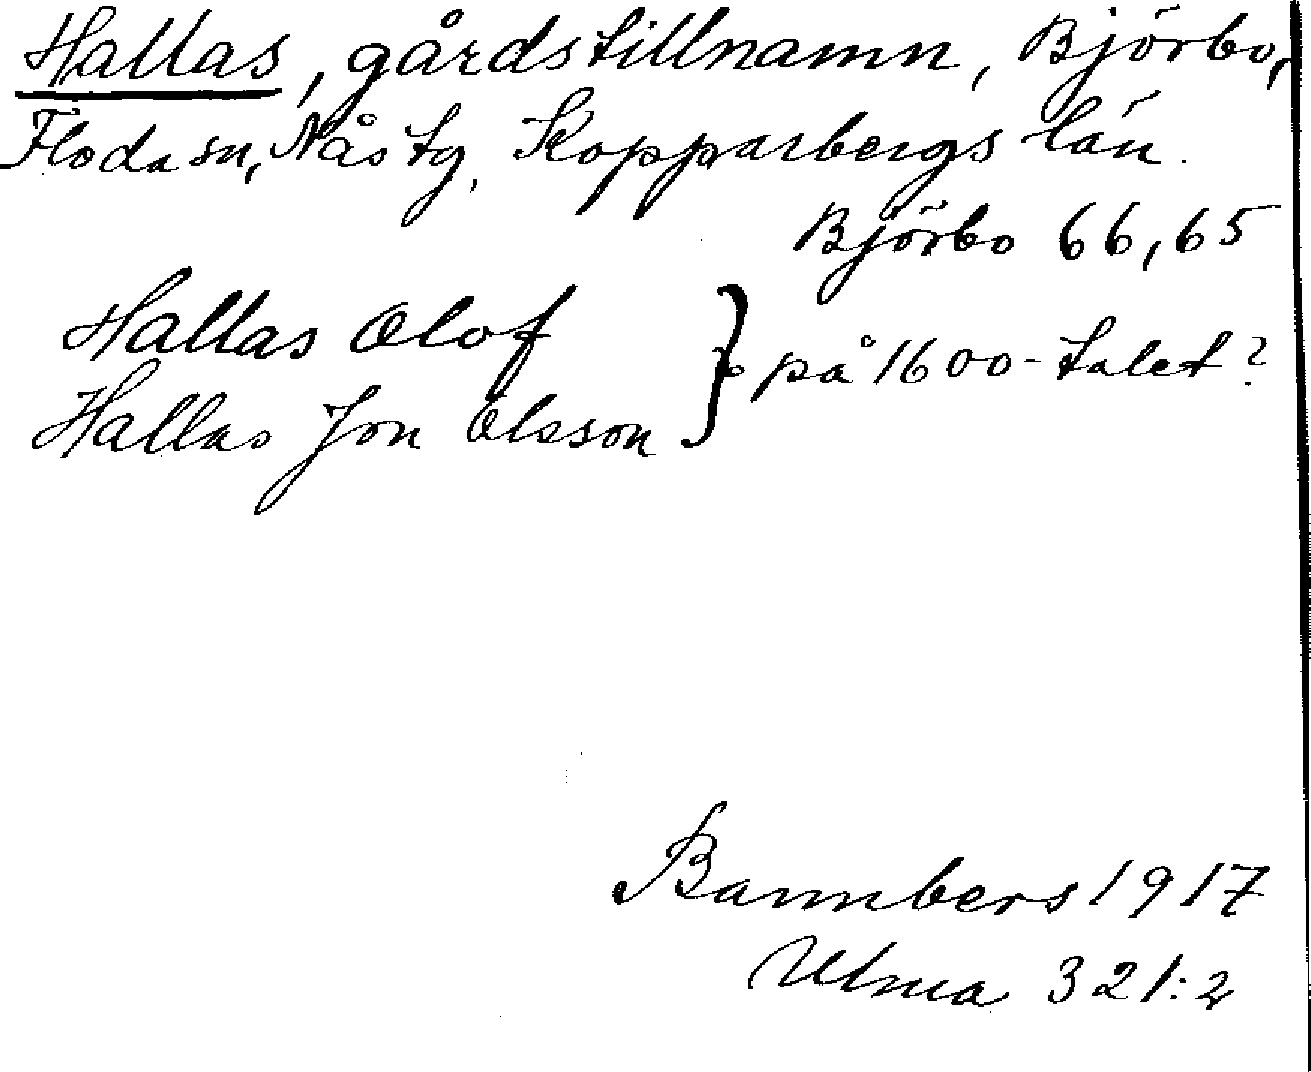 Hallas, gårdstillnamn, Björbo,
Floda sn, Nås tg, Kopparbergs län.
Björbo 66, 65
Hallas Olof
Hallas Jon Olsson } på 1600-talet?
Bannbers 1917
Ulma 321:2